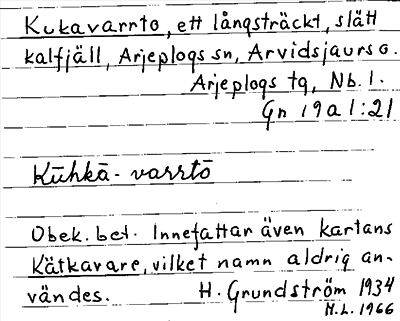 Kukavarrto, ett långsträckt, slätt
kalfjäll, Arjeplogs sn, Arvidsjaurs o.
Arjeplogs tg, Nb. l.
Gn 19a1:21
Kūhkā-varrtō
Obek. bet. Innefattar även kartans
Kätkavare, vilket namn aldrig an-
vändes. H. Grundström 1934
M.L. 1966